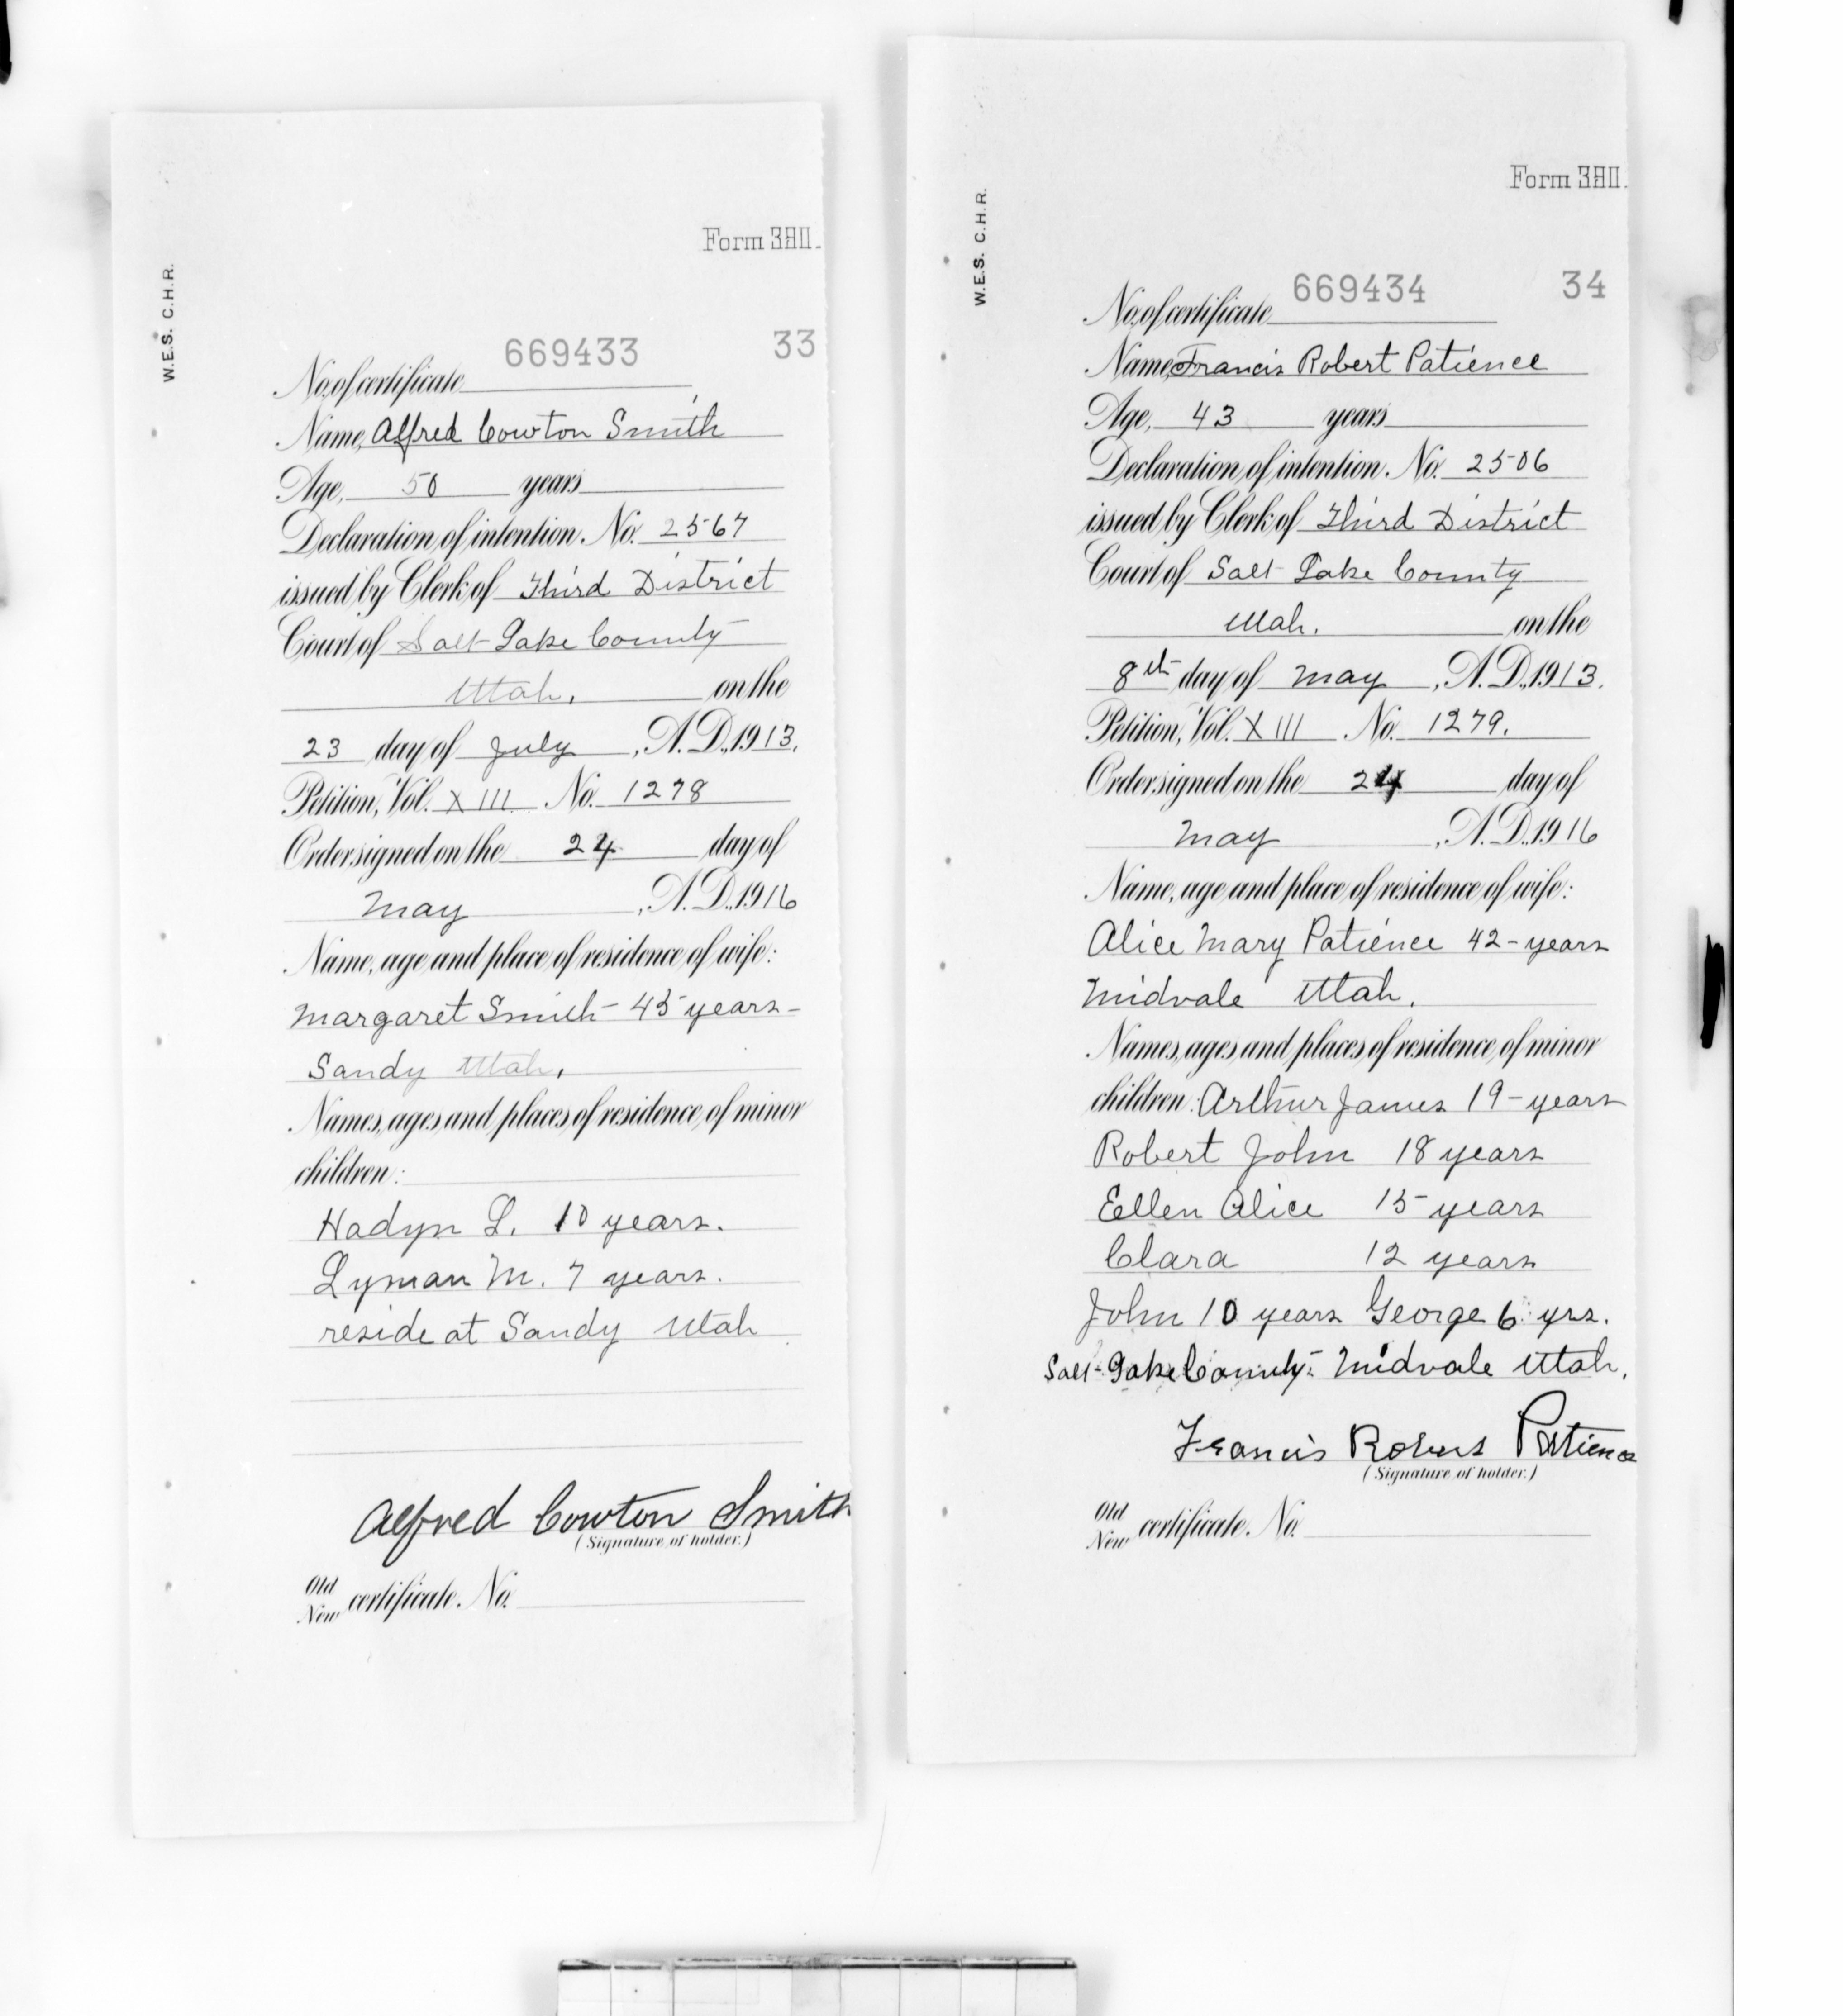 W.E.S. C.H.R.
Form 3811.
669433 33
No. of certificate
Name, Alfred Cowton Smith
Age, 50 years
Declaration of intention. No. 2567
issued by Clerk of Third District
Court of Salt Lake County
Utah, on the
23 day of July, A.D. 1913.
Petition, Vol. XIII No. 1278
Order signed on the 24 day of
May, A.D. 1916
Name, age and place of residence of wife:
Margaret Smith - 45 years -
Sandy Utah.
Names, ages and places of residence of minor
children:
Hadyn L. 10 years.
Lyman M. 7 years.
reside at Sandy Utah
Alfred Cowton Smith
(Signature of holder.)
Old
New certificate. No.
W.E.S. C.H.R.
Form 3811.
669434 34
No. of certificate
Name, Francis Robert Patience
Age, 43 years
Declaration of intention. No. 2506
issued by Clerk of Third District
Court of Salt Lake County
Utah. on the
8th day of May, A.D. 1913.
Petition, Vol. XIII No. 1279.
Order signed on the 24 day of
May, A.D. 1916
Name, age and place of residence of wife:
Alice Mary Patience 42 - years
Midvale Utah.
Names, ages and places of residence of minor
children: Arthur James 19 - years
Robert John 18 years
Ellen Alice 15 years
Clara 12 years
John 10 years George 6 yrs.
Salt Lake County - Midvale Utah.
Francis Robert Patience
(Signature of holder.)
Old
New certificate. No.